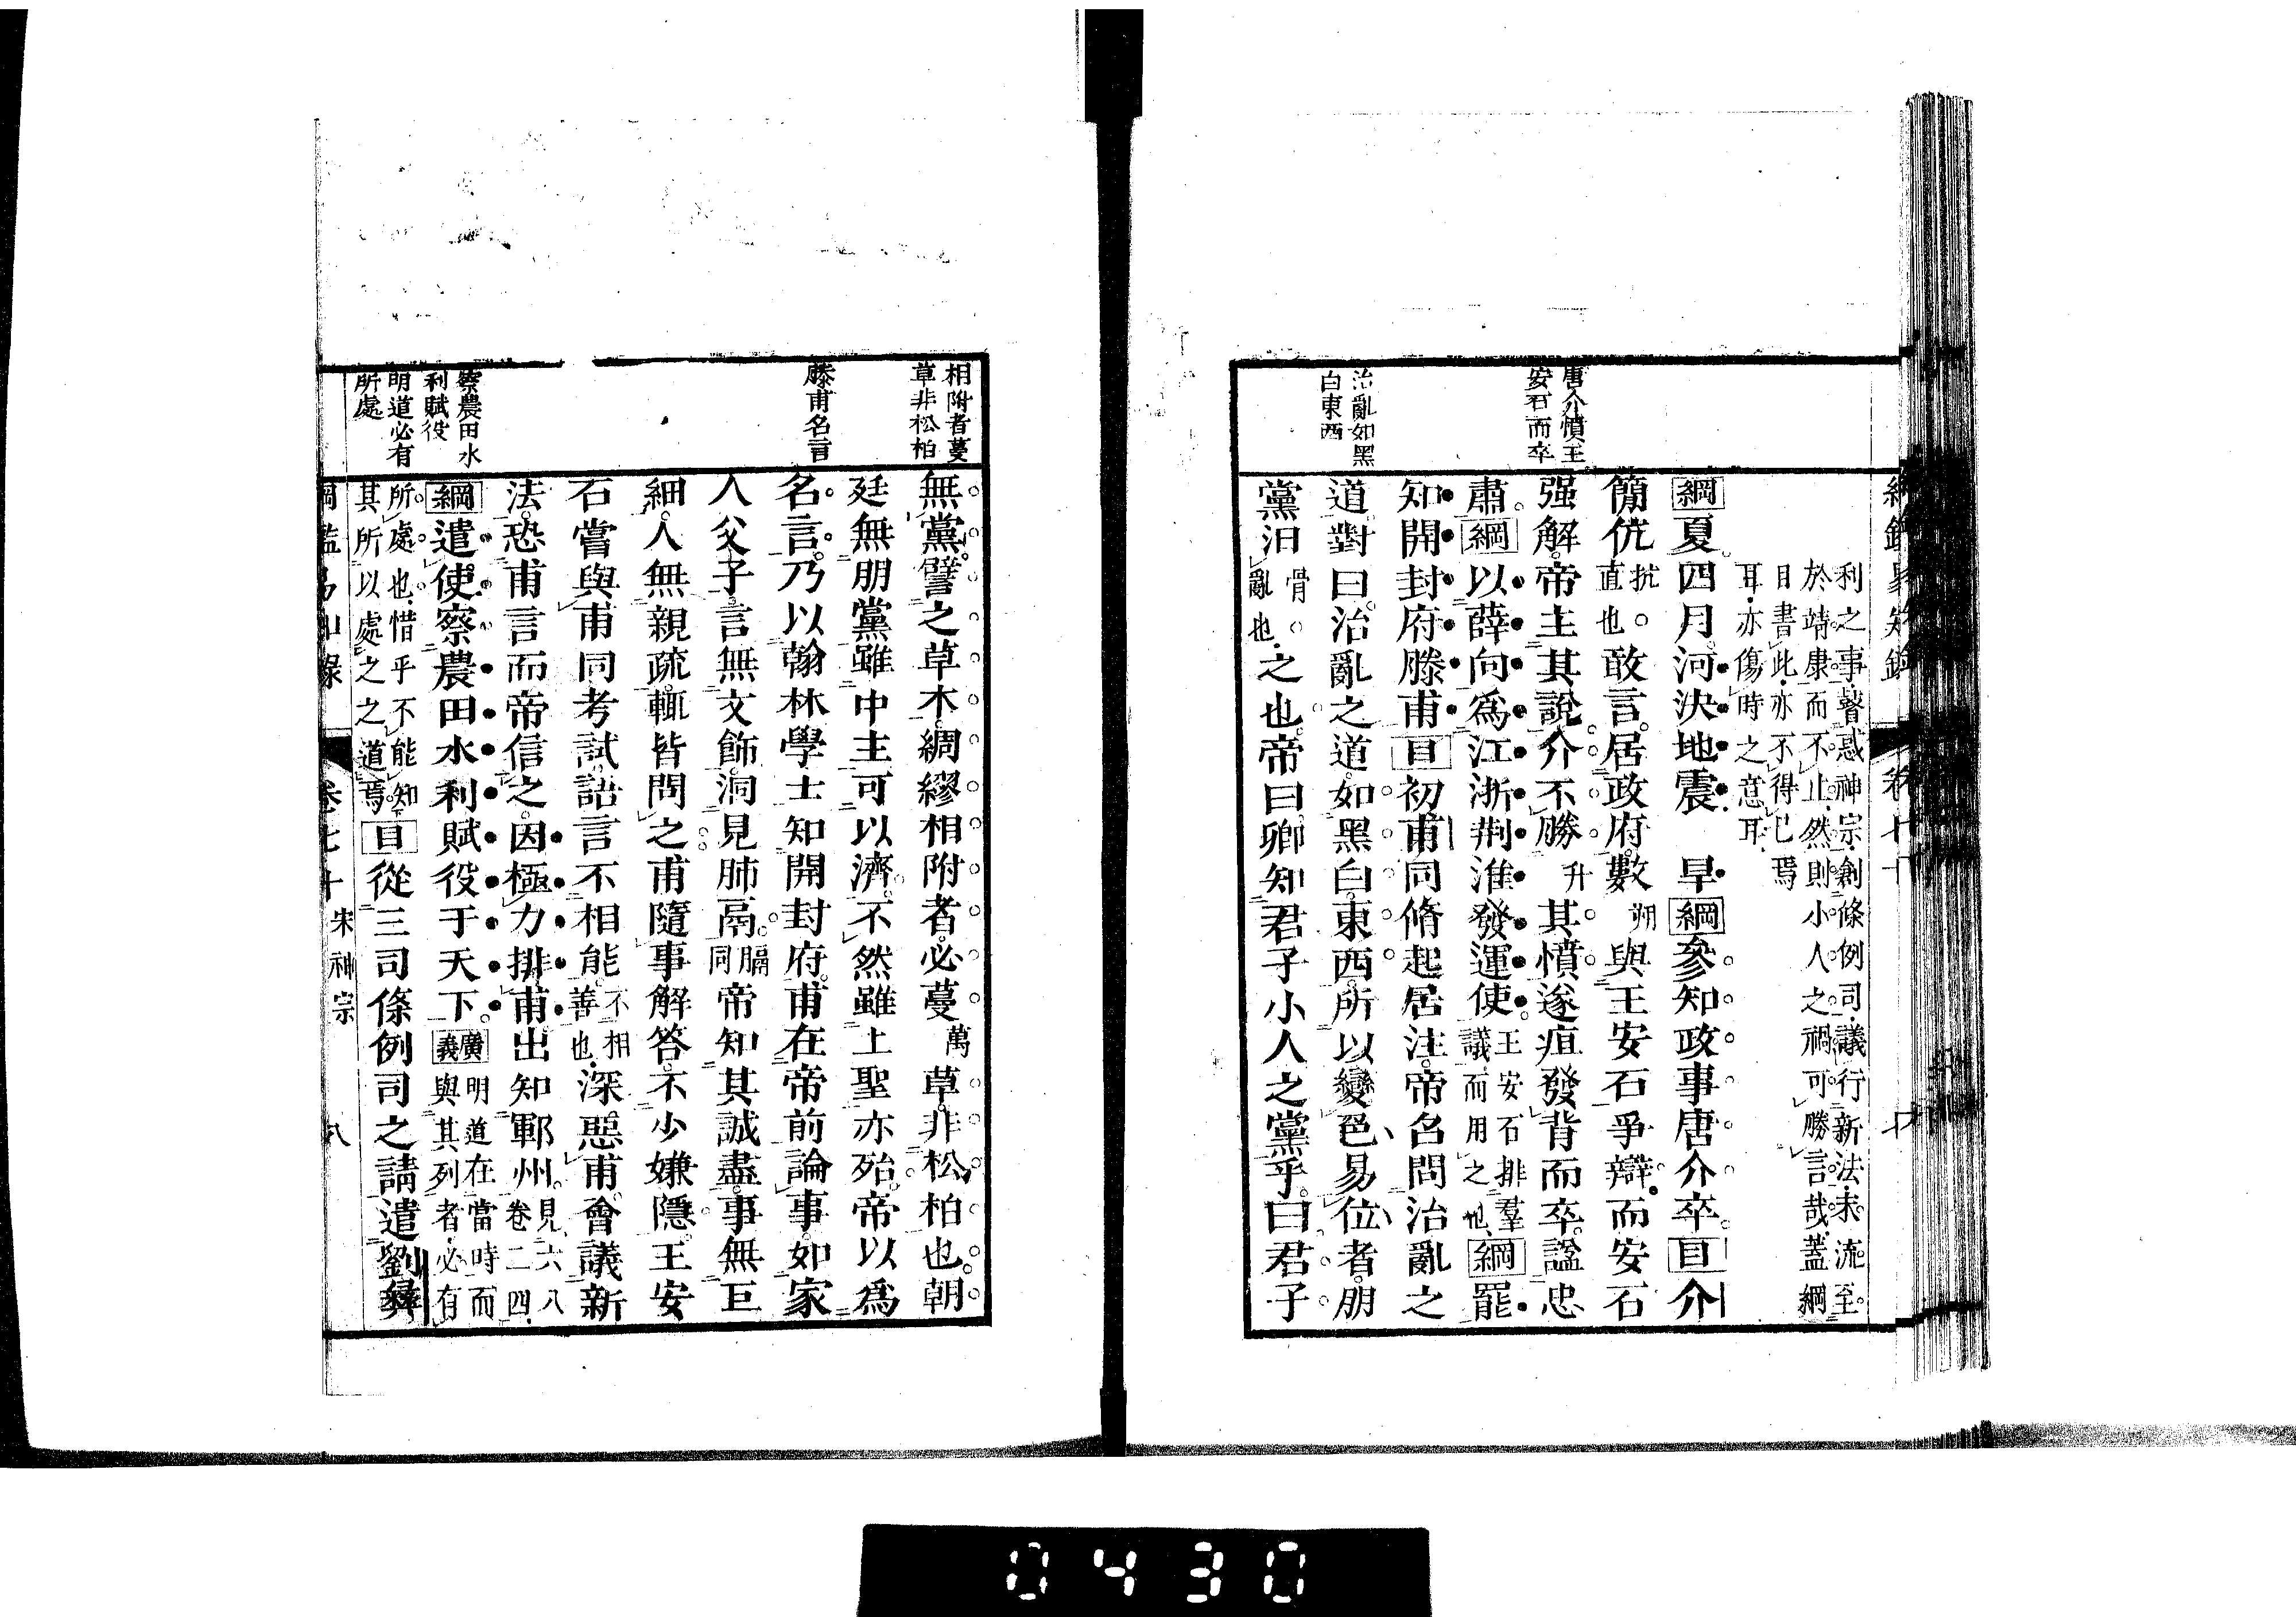 唐介憤王
安石而卒
治亂如黑
白東西
利之事瞽惑神宗創條例司議行新法末流至
於靖康而不止然則小人之禍可勝言哉蓋綱
目書此亦不得已焉
耳亦傷時之意耳
綱夏四月河決地震 旱綱參知政事唐介卒目介
簡伉抗直也敢言居政府數朔與王安石爭辯而安石
强解帝主其說介不勝升其憤遂疽發背而卒諡忠
肅綱以薛向爲江浙荆淮發運使王安石排羣議而用之也綱罷
知開封府滕甫目初甫同脩起居注帝召問治亂之
道對曰治亂之道如黑白東西所以變色易位者朋
黨汩骨亂也之也帝曰卿知君子小人之黨乎曰君子
相附者蔓
草非松柏
滕甫名言
察農田水
利賦役
明道必有
所處
無黨譬之草木綢繆相附者必蔓萬草非松柏也朝
廷無朋黨雖中主可以濟不然雖上聖亦殆帝以爲
名言乃以翰林學士知開封府甫在帝前論事如家
人父子言無文飾洞見肺鬲膈同帝知其誠盡事無巨
細人無親疏輒皆問之甫隨事解答不少嫌隱王安
石嘗與甫同考試語言不相能不相善也深惡甫會議新
法恐甫言而帝信之因極力排甫出知鄆州見六八卷二四
綱遣使察農田水利賦役于天下廣義明道在當時而與其列者必有
所處也惜乎不能知其所以處之之道焉目從三司條例司之請遣劉彝
綱鑑易知錄 卷七十 宋神宗 八
0430